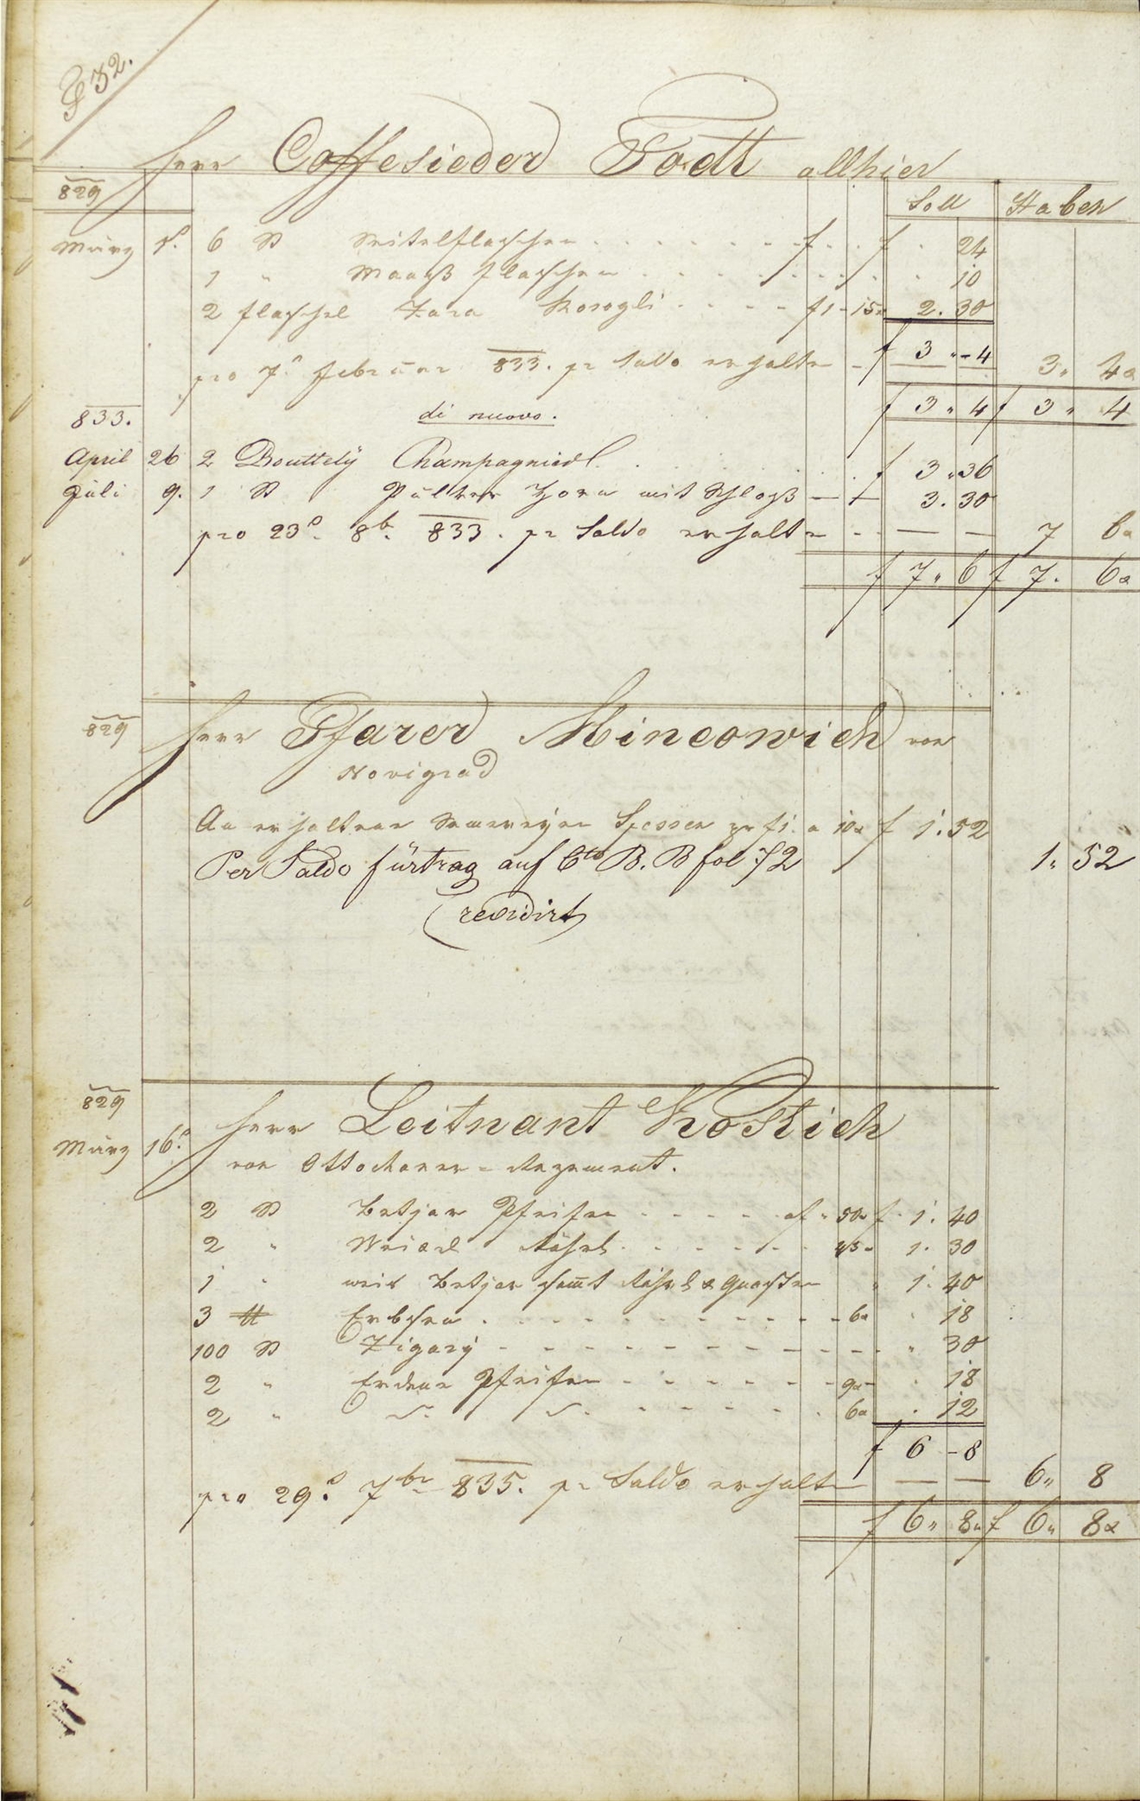 32.
Herr Coffesieder Todt allhier
829
Soll Haben
März 1. 6 St Seitelflaschen f 24
1 " Maaß flaschen 10
2 flaschel Zara Rosogli f 1 - 15 2. 30
f 3 - 4
pro 7. Februar 833. pr Saldo erhalten 3. 4
f 3 . 4 f 3 . 4
833. di nuovo.
April 26 2 Bouttely Champagnier f 3 . 36
Juli 9. 1 St Pulver Horn mit Schloß 3. 30
pro 23. 8b. 833. pr Saldo erhalten 7 6
f 7 . 6 f 7 . 6
829 Herr Pfarer Mincowich von
Novigrad
An erhaltene Spesen f 1. 52
Per Saldo fürtrag auf Cto B. B fol 72 1. 52
revidirt
829
März 16. Herr Leitnant Kostich
von Ottochaner - Regement.
2 St Betjar Pfeifen af . 50 f 1. 40
2 " Röhrl 45 1. 30
1 " Betjar samt Röhrl & Quasten 1. 40
3 ℔ Erbsen 6 18
100 St Zigary 30
2 " Erdene Pfeifen 9 18
2 " 6 12
f 6 - 8
pro 29. 7br 835. pr Saldo erhalten 6. 8
f 6 . 8 f 6 . 8